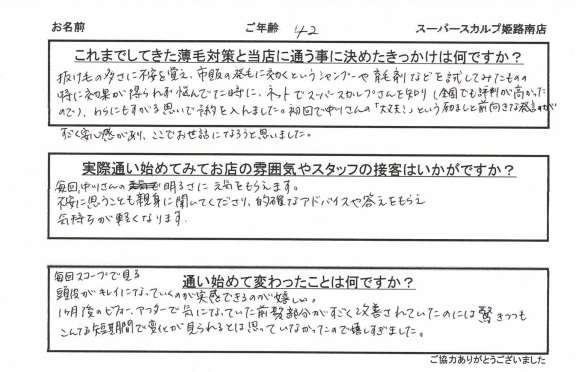 お名前 ご年齢 42 スーパースカルプ姫路南店
これまでしてきた薄毛対策と当店に通う事に決めたきっかけは何ですか?
抜け毛の多さに不安を覚え、市販の発毛に効くというシャンプーや育毛剤などを試してみたものの
特に効果が得られず悩んでた時に、ネットでスーパースカルプさんを知り(全国でも評判が高かった
ので)、わらにもすがる思いで予約を入れました。初回で中川さんの「大丈夫!」という励ましと前向きな発言が
すごく安心感があり、ここでお世話になろうと思いました。
実際通い始めてみてお店の雰囲気やスタッフの接客はいかがですか?
毎回、中川さんの 明るさに元気をもらえます。
不安に思うことも親身に聞いてくださり、的確なアドバイスや答えをもらえ
気持ちが軽くなります。
通い始めて変わったことは何ですか?
毎回スコープで見る
頭皮がキレイになっていくのが実感できるのが嬉しい。
1ヶ月後のビフォーアフターで気になっていた前髪部分がすごく改善されていたのには驚きつつも
こんなる短期間で変化が見られるとは思っていなかったので嬉しすぎました。
ご協力ありがとうございました